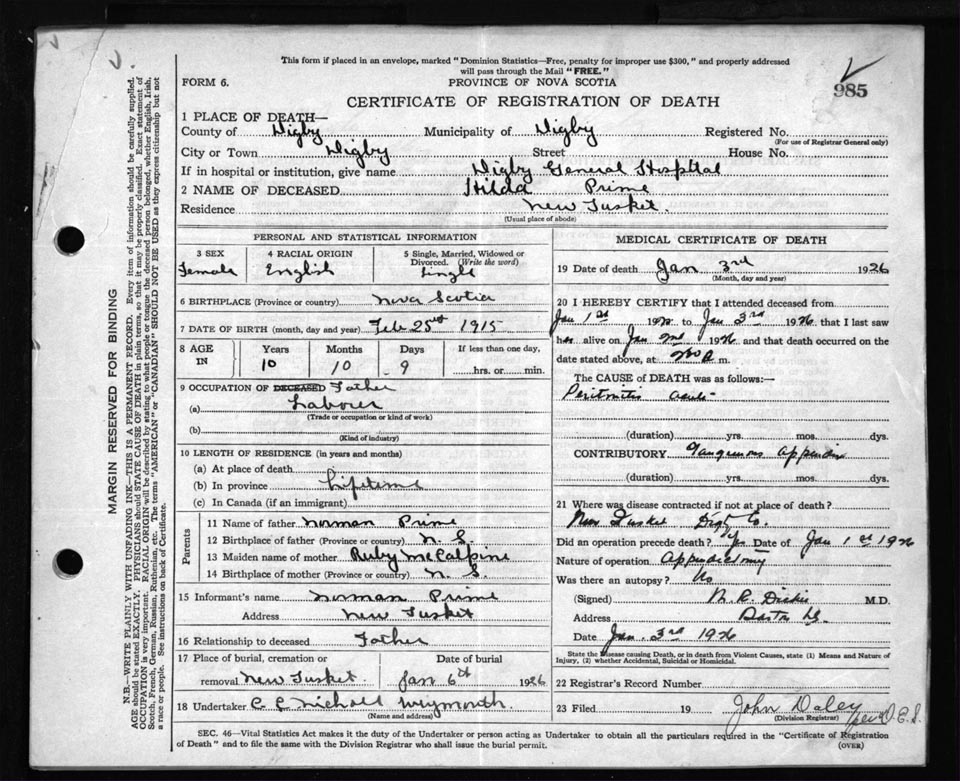 This form if placed in an envelope, marked "Dominion Statistics—Free, penalty for improper use $300," and properly addressed
will pass through the Mail "FREE."
FORM 6.
PROVINCE OF NOVA SCOTIA
985
CERTIFICATE OF REGISTRATION OF DEATH
1 PLACE OF DEATH—
County of Digby Municipality of Digby Registered No.
(For use of Registrar General only)
City or Town Digby Street House No.
If in hospital or institution, give name Digby General Hospital
2 NAME OF DECEASED Hilda Prime
Residence New Tusket.
(Usual place of abode)
PERSONAL AND STATISTICAL INFORMATION
3 SEX 4 RACIAL ORIGIN 5 Single, Married, Widowed or
Divorced. (Write the word)
Female English Single
6 BIRTHPLACE (Province or country) Nova Scotia
7 DATE OF BIRTH (month, day and year) Feb 25th 1915
8 AGE IN Years Months Days If less than one day,
10 10 9 hrs. or min.
9 OCCUPATION OF DECEASED Father
(a) Labourer
(Trade or occupation or kind of work)
(b)
(Kind of industry)
10 LENGTH OF RESIDENCE (in years and months)
(a) At place of death
(b) In province Lifetime
(c) In Canada (if an immigrant)
Parents
11 Name of father Norman Prime
12 Birthplace of father (Province or country) N. S.
13 Maiden name of mother Ruby McCalpine
14 Birthplace of mother (Province or country) N. S.
15 Informant's name Norman Prime
Address New Tusket
16 Relationship to deceased Father
17 Place of burial, cremation or Date of burial
removal New Tusket Jan 6th 1926
18 Undertaker C E Nichols Weymouth.
(Name and address)
MEDICAL CERTIFICATE OF DEATH
19 Date of death Jan 3rd 1926
(Month, day and year)
20 I HEREBY CERTIFY that I attended deceased from
Jan 1st 1926 to Jan 3rd 1926 that I last saw
her alive on Jan 2nd 1926 and that death occurred on the
date stated above, at m.
The CAUSE OF DEATH was as follows:—
Peritonitis acute
(duration) yrs. mos. dys.
CONTRIBUTORY Gangrenous appendix
(duration) yrs. mos. dys.
21 Where was disease contracted if not at place of death?
New Tusket Digby Co.
Did an operation precede death? Yes Date of Jan 1st 1926
Nature of operation Appendectomy
Was there an autopsy? No
(Signed) Dickie M.D.
Address
Date Jan. 3rd 1926
State the Disease causing Death, or in death from Violent Causes, state (1) Means and Nature of
Injury, (2) whether Accidental, Suicidal or Homicidal.
22 Registrar's Record Number
23 Filed 19 John Daley per D.E.S.
(Division Registrar)
SEC. 46—Vital Statistics Act makes it the duty of the Undertaker or person acting as Undertaker to obtain all the particulars required in the "Certificate of Registration
of Death" and to file the same with the Division Registrar who shall issue the burial permit.
(OVER)
MARGIN RESERVED FOR BINDING
N.B.—WRITE PLAINLY WITH UNFADING INK—THIS IS A PERMANENT RECORD. Every item of information should be carefully supplied.
AGE should be stated EXACTLY. PHYSICIANS should STATE CAUSE OF DEATH in plain terms, so that it may be properly classified. Exact statement of
OCCUPATION is very important. RACIAL ORIGIN will be described by stating to what people or tongue the deceased person belonged, whether English, Irish,
Scotch, French, German, Russian, Ruthenian, etc. The terms "AMERICAN" or "CANADIAN" SHOULD NOT BE USED as they express citizenship but not
a race or people. See instructions on back of Certificate.